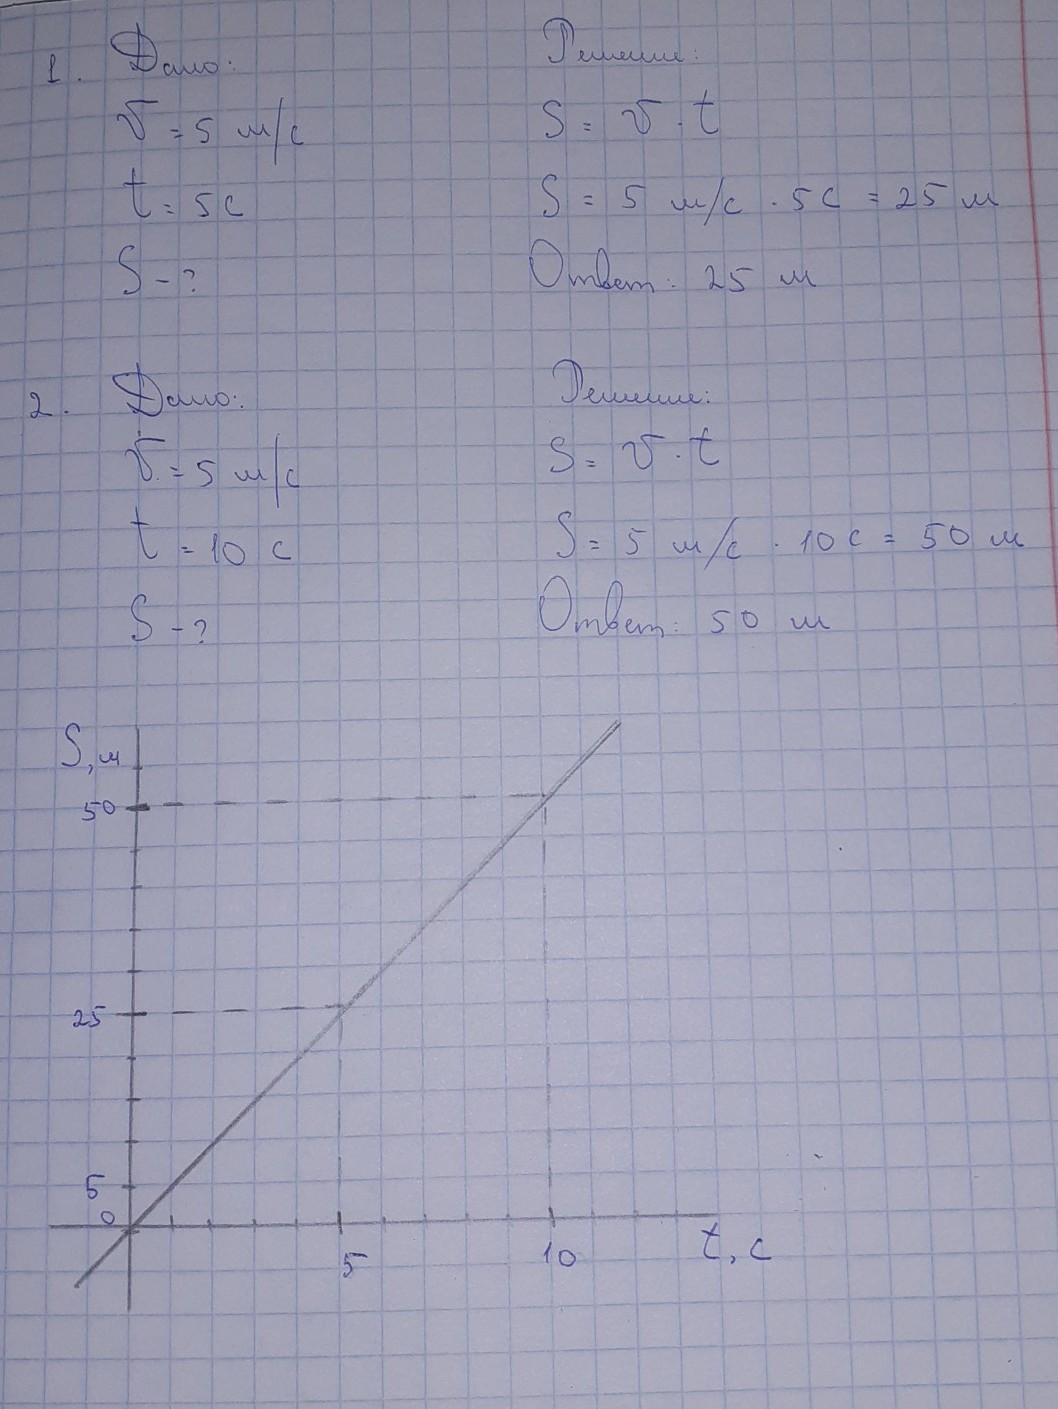 1. Дано: Решение:
v = 5 м/с S = v · t
t = 5 с S = 5 м/с · 5 с = 25 м
S - ? Ответ: 25 м
2. Дано: Решение:
v = 5 м/с S = v · t
t = 10 с S = 5 м/с · 10 с = 50 м
S - ? Ответ: 50 м
S, м
50
25
5
0
5 10 t, с